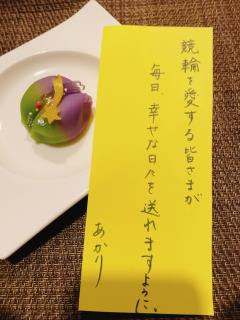 競輪を愛する皆さまが
毎日、幸せな日々を送れますように、
あかり